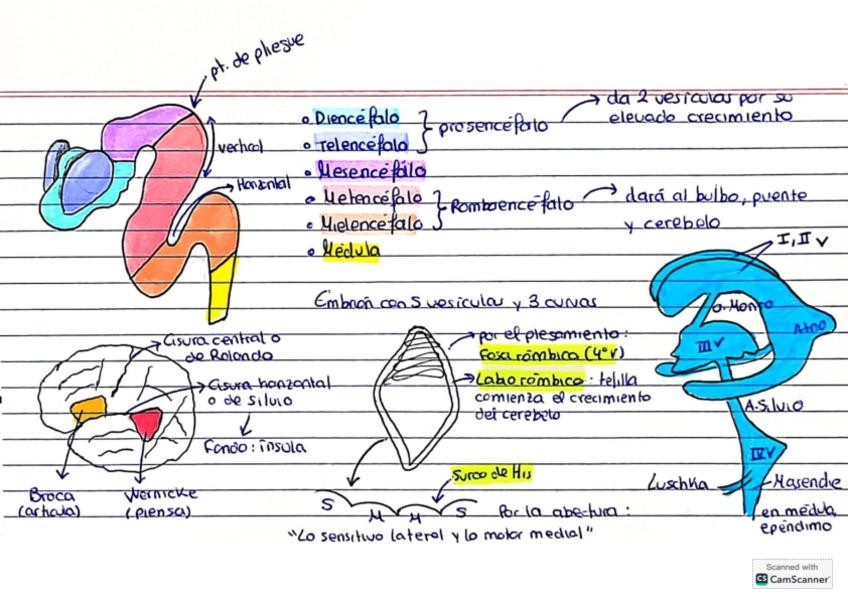 pt. de pliegue
• Diencéfalo
• Telencéfalo
prosencéfalo
da 2 vesículas por su
elevado crecimiento
• Mesencéfalo
• Metencéfalo
• Mielencéfalo
Romboencéfalo
dará al bulbo, puente
y cerebelo
• Médula
vertical
Horizontal
Embrión con 5 vesículas y 3 curvas
I, II V
O. Monro
III V
Atrio
A. Silvio
IV V
Luschka
Magendie
en médula,
epéndimo
Cisura central o
de Rolando
Cisura horizontal
o de silvio
Fondo: ínsula
Broca
(articula)
Wernicke
(piensa)
por el plegamiento:
Fosa rómbica (4º V)
Labio rómbico: telilla
comienza el crecimiento
del cerebelo
Surco de His
S M M S
Por la abertura:
"Lo sensitivo lateral y lo motor medial"
Scanned with
CS CamScanner